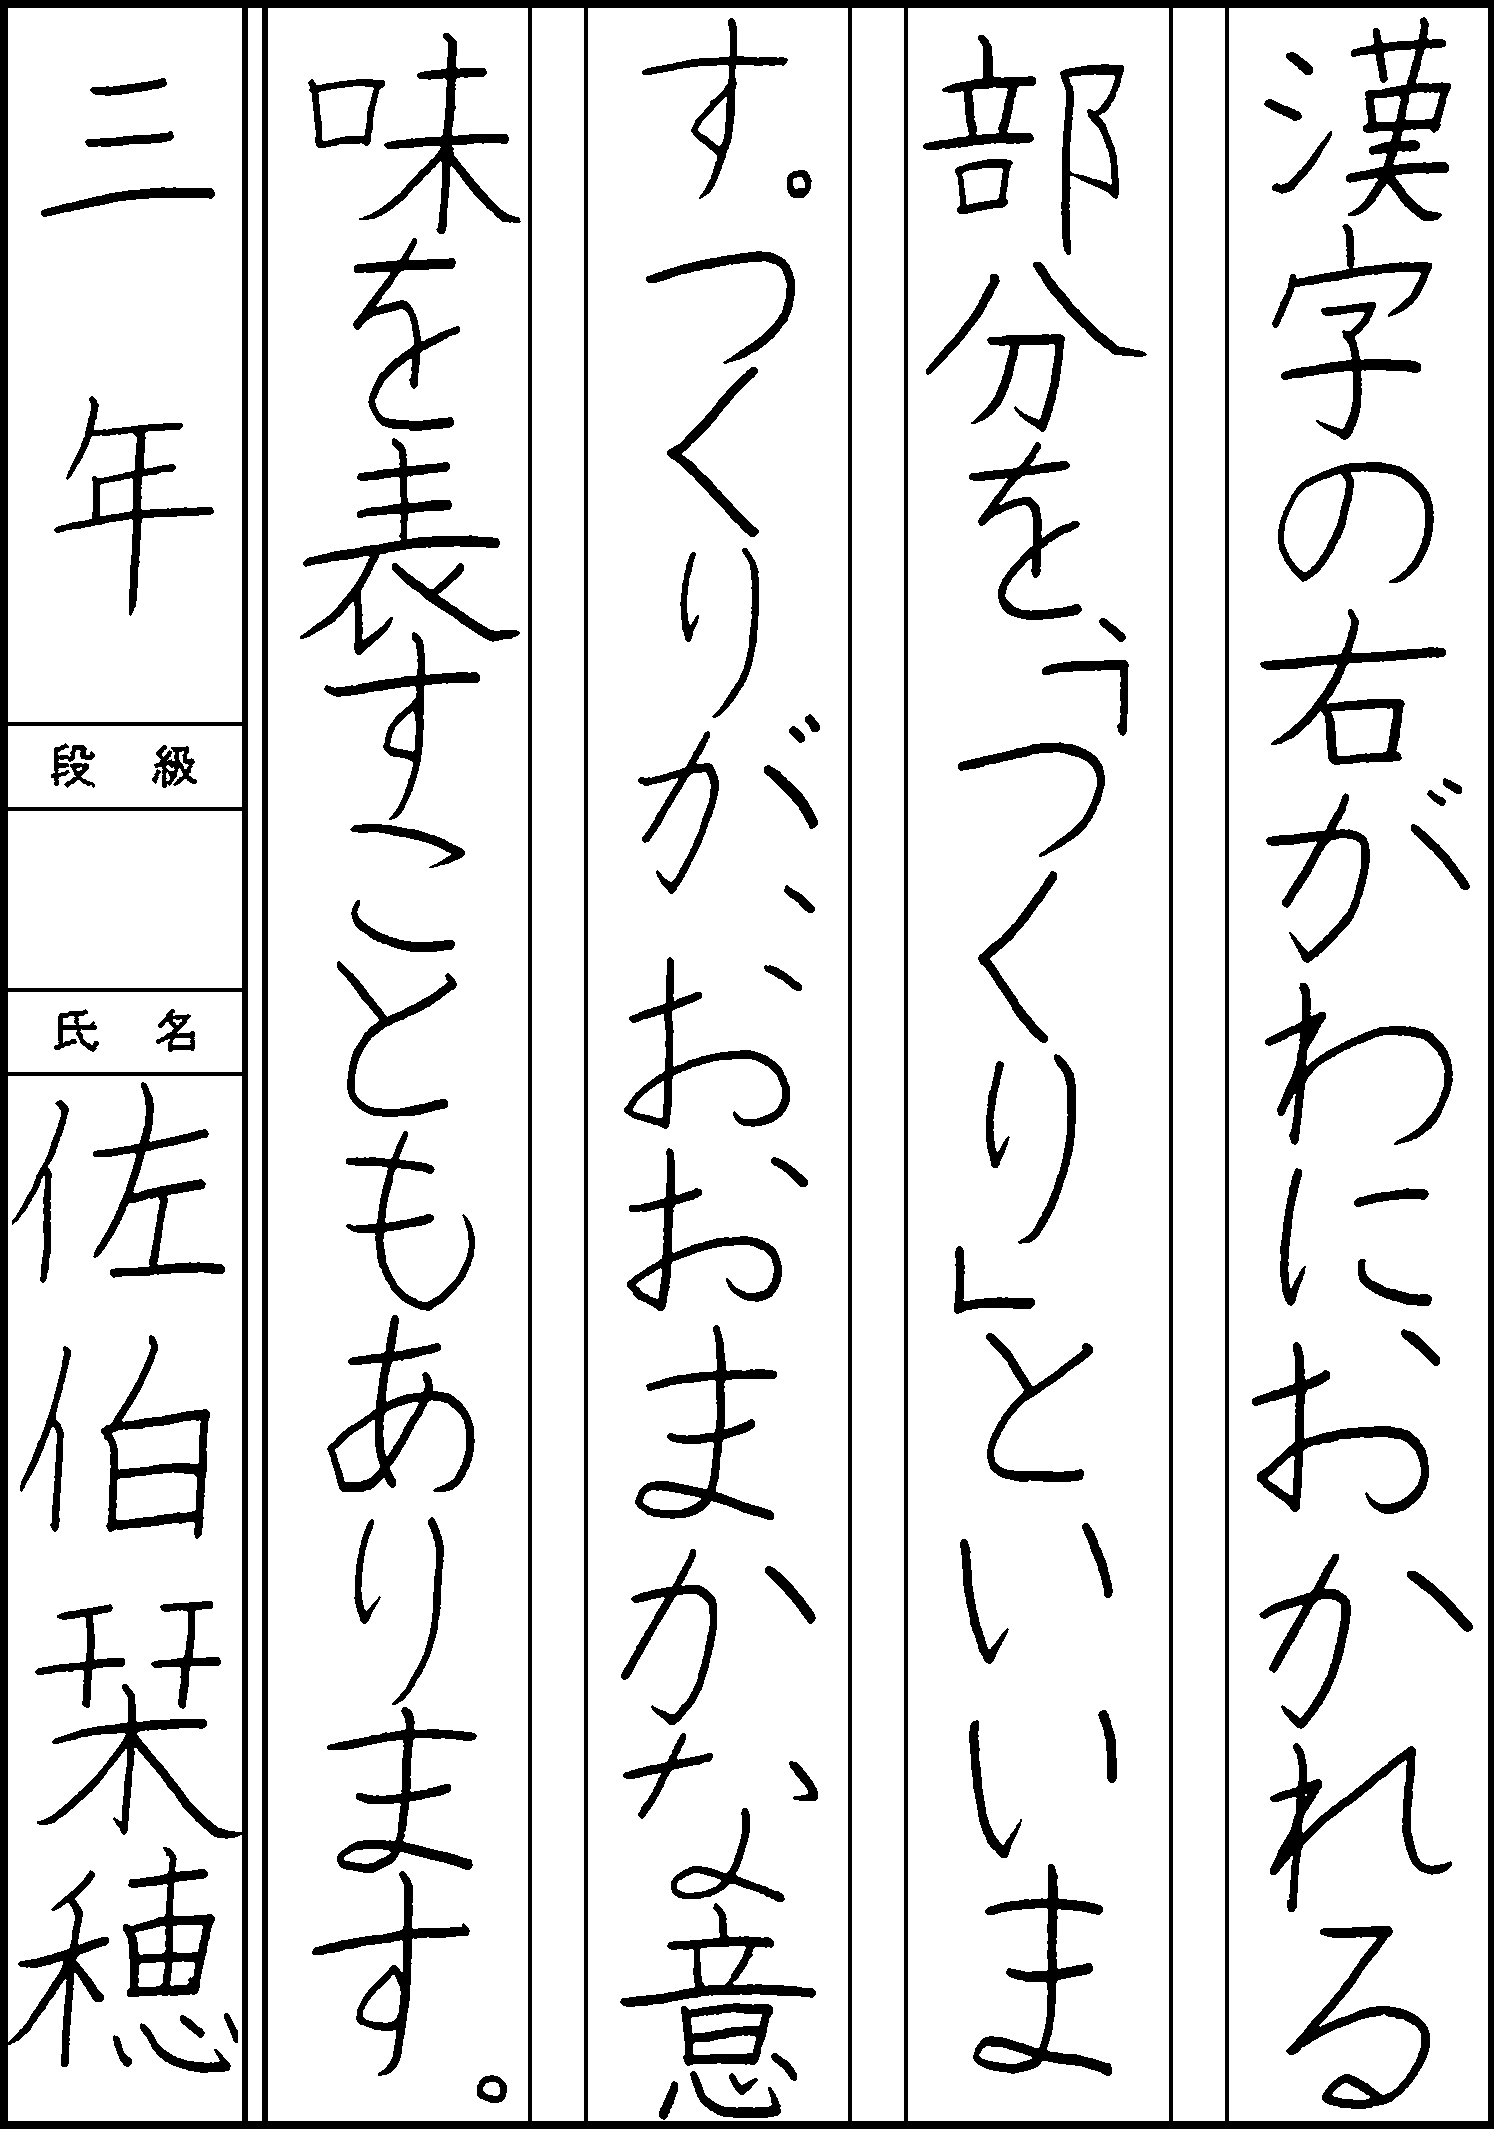 漢字の右がわにおかれる
部分を、「つくり」といいま
す。つくりが、おおまかな意
味を表すこともあります。
三年
段級
氏名
佐伯栞穂